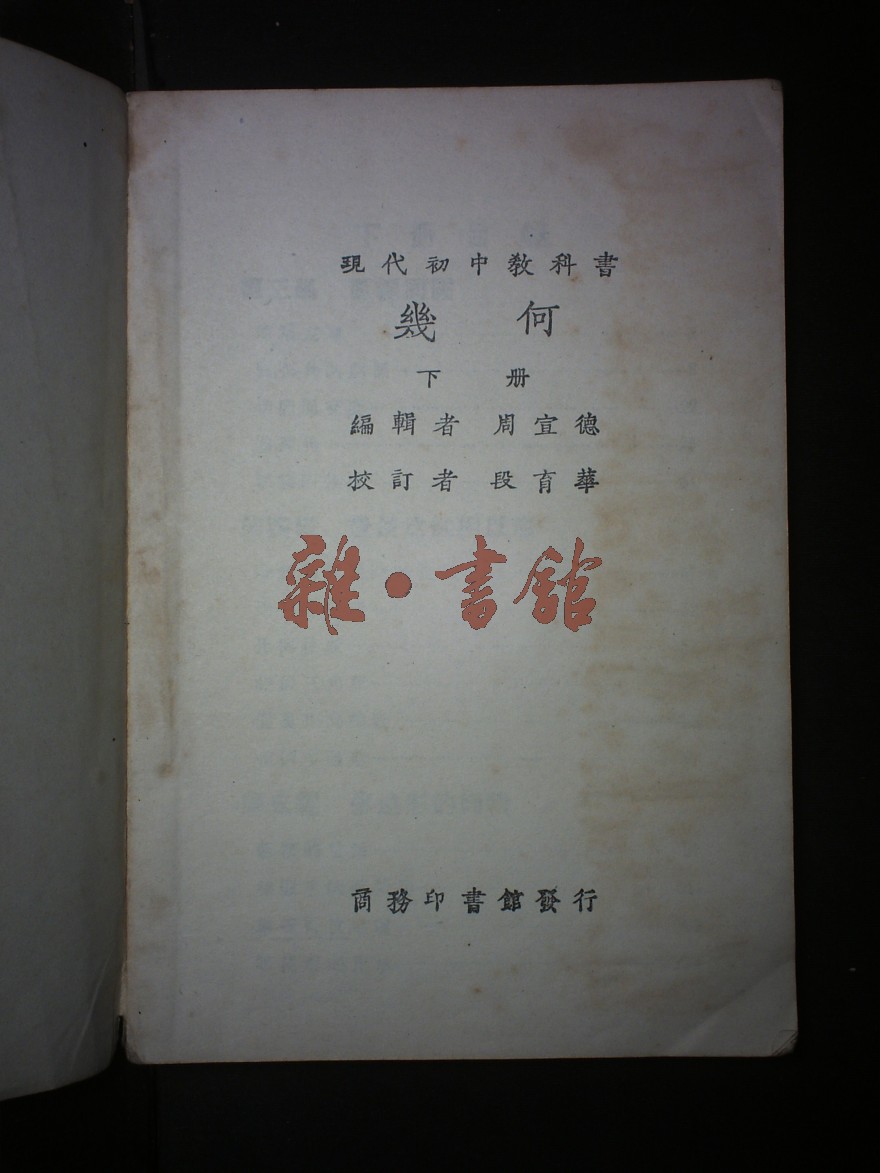 現代初中教科書
幾何
下册
編輯者 周宣德
校訂者 段育華
雜·書館
商務印書館發行